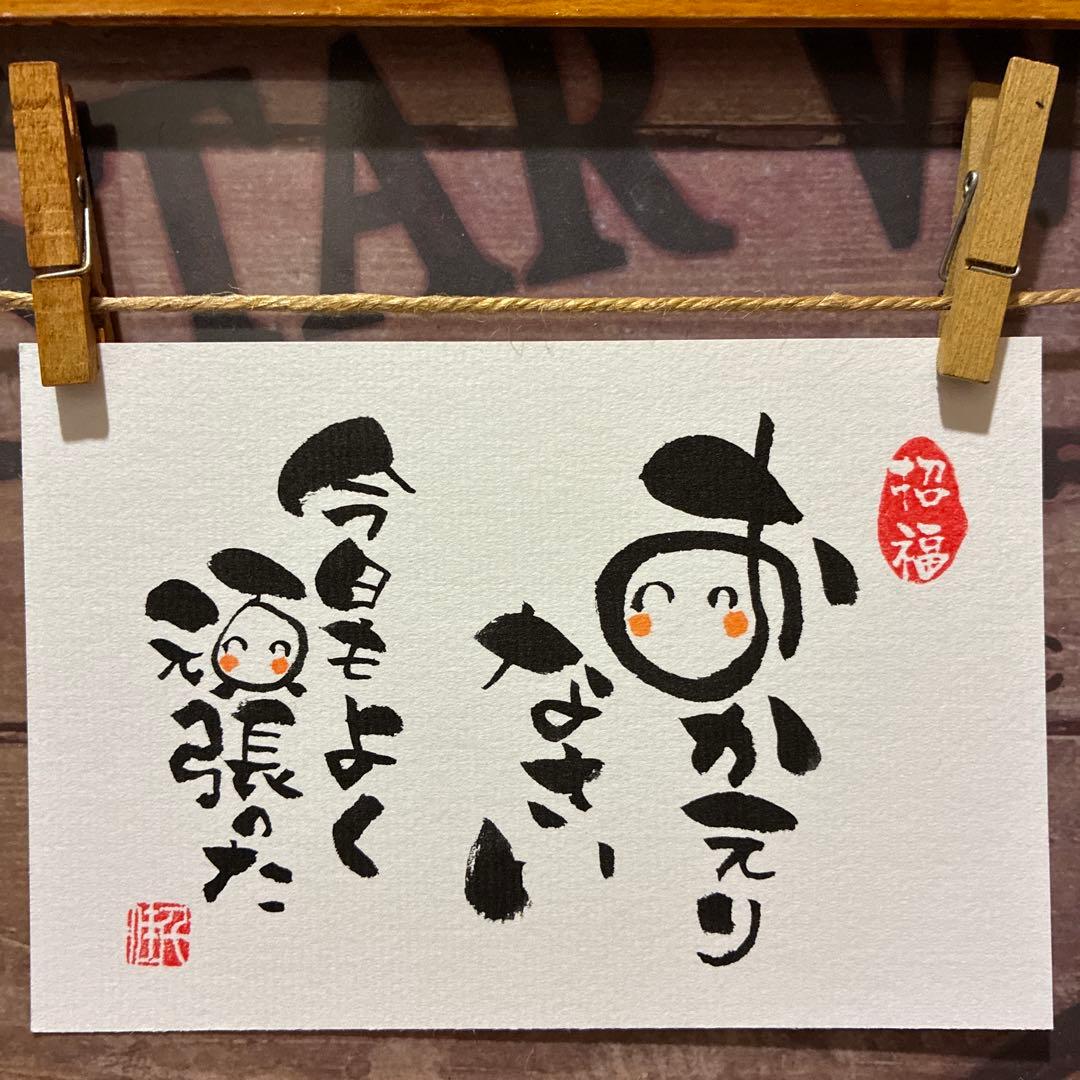 招福
おかえり
なさい
今日もよく
頑張った
TAR W